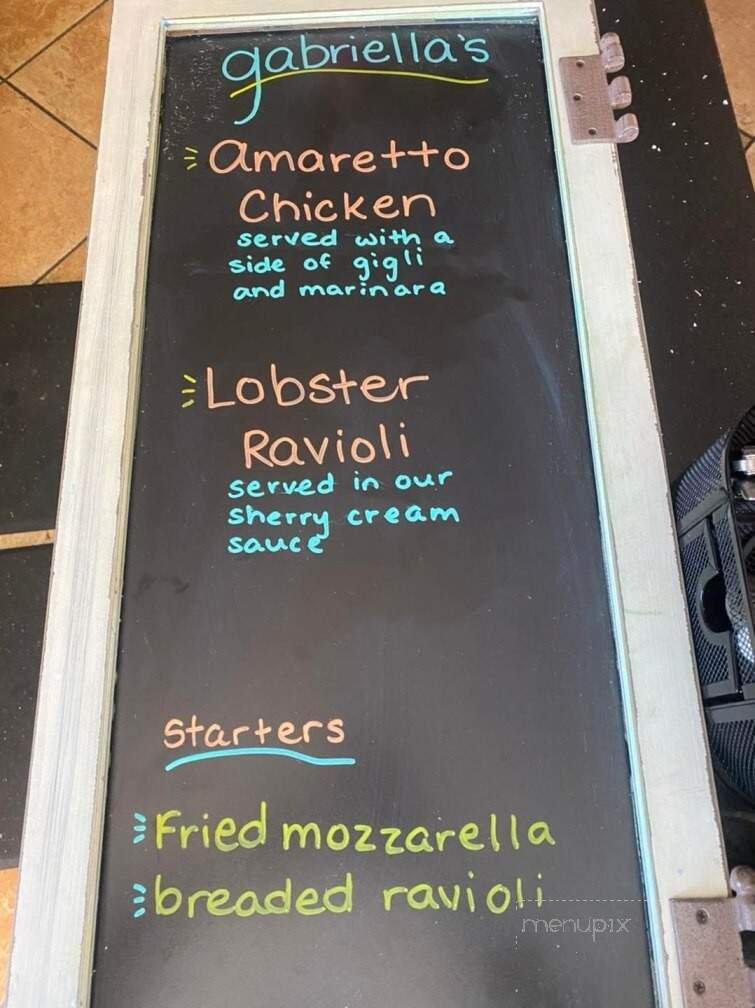 gabriella's
Amaretto
Chicken
served with a
side of gigli
and marinara
Lobster
Ravioli
served in our
sherry cream
sauce
Starters
Fried mozzarella
breaded ravioli
menupix